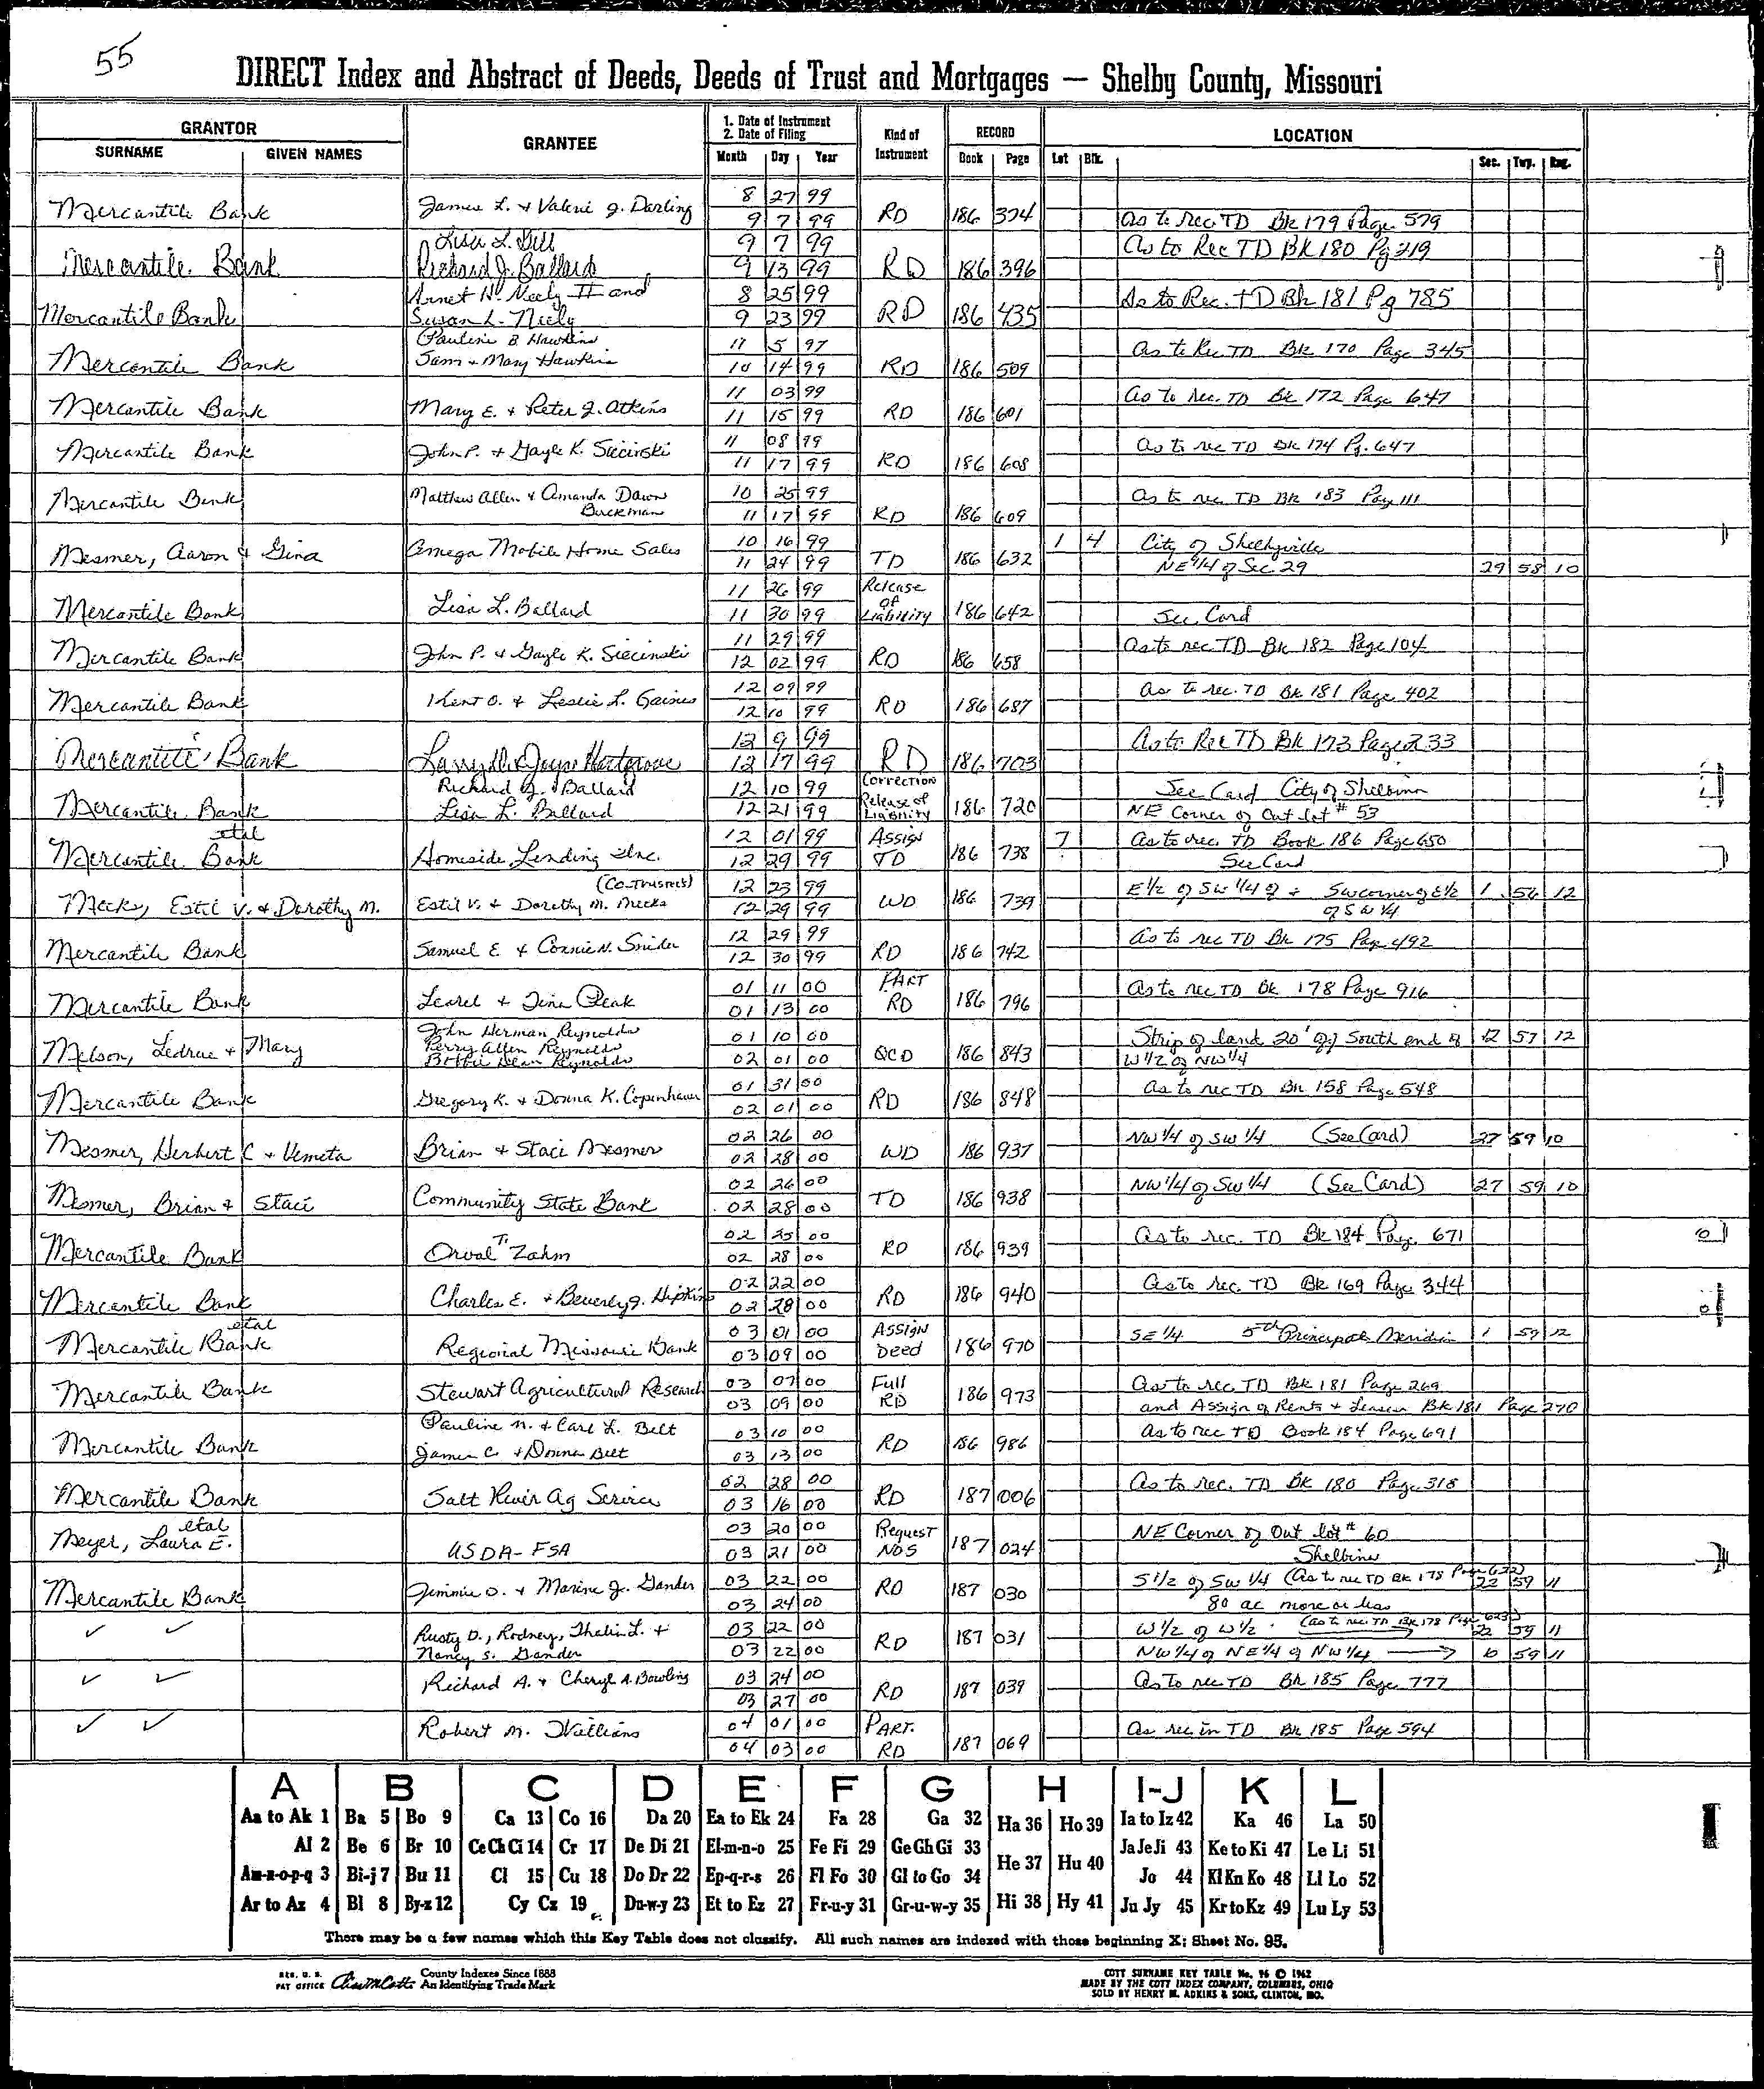 55
DIRECT Index and Abstract of Deeds, Deeds of Trust and Mortgages — Shelby County, Missouri
GRANTOR SURNAME GIVEN NAMES GRANTEE 1. Date of Instrument 2. Date of Filing Month Day Year Kind of Instrument RECORD Book Page Lot Blk. LOCATION Sec. Twp. Rng.
Mercantile Bank James L. + Valerie J. Darling 8 27 99 RD 186 374
9 7 99 As to Rec TD Bk 179 Page 579
Lisa L. Gill 9 7 99 As to Rec TD Bk 180 Pg 219
Mercantile Bank Richard J. Ballard 9 13 99 RD 186 396
Arnet H. Neely II and 8 25 99 As to Rec. TD Bk 181 Pg 785
Mercantile Bank Susan L. Neely 9 23 99 RD 186 435
Pauline B Hawkins 11 5 97 As to Rec TD Bk 170 Page 345
Mercantile Bank Sam + Mary Hawkins 10 14 99 RD 186 509
11 03 99 As to rec. TD Bk 172 Page 647
Mercantile Bank Mary E. + Peter J. Atkins 11 15 99 RD 186 601
11 08 99 As to rec TD Bk 174 Pg. 647
Mercantile Bank John P. + Gayle K. Siecinski 11 17 99 RD 186 608
Matthew Allen + Amanda Dawn 10 25 99 As to rec TD Bk 183 Pag 111
Mercantile Bank Buckman 11 17 99 RD 186 609
10 16 99 1 4 City of Shelbyville
Mesmer, Aaron & Gina Omega Mobile Home Sales 11 24 99 TD 186 632 NE 1/4 of Sec 29 29 58 10
11 26 99 Release of Liability
Mercantile Bank Lisa L. Ballard 11 30 99 186 642 See Card
11 29 99 As to rec TD Bk 182 Page 104
Mercantile Bank John P. + Gayle K. Siecinski 12 02 99 RD 186 658
12 09 99 As to rec. TD Bk 181 Page 402
Mercantile Bank Kent O. + Leslie L. Gaines 12 10 99 RD 186 687
12 9 99 As to Rec TD Bk 173 Page 233
Mercantile Bank Larry + Jayne Hartgrove 12 17 99 RD 186 703
Richard J. + Ballard 12 10 99 Correction See Card City of Shelbina
Mercantile Bank Lisa L. Ballard 12 21 99 Release of Liability 186 720 NE Corner of Out lot # 53
etal 12 01 99 Assign 7 As to rec. TD Book 186 Page 650
Mercantile Bank Homeside Lending Inc. 12 29 99 TD 186 738 See Card
(Co-Trustees) 12 23 99 E 1/2 of SW 1/4 of + SW corner of E 1/2 1 56 12
Meeks, Estil V. + Dorothy M. Estil V. + Dorothy M. Meeks 12 29 99 WD 186 739 of SW 1/4
12 29 99 As to rec TD Bk 175 Page 492
Mercantile Bank Samuel E. + Connie N. Snider 12 30 99 RD 186 742
01 11 00 PART As to rec TD Bk 178 Page 916
Mercantile Bank Learel + Tina Peak 01 13 00 RD 186 796
John Herman Reynolds 01 10 00 Strip of land 20' off South end of 12 57 12
Melson, Ledrue + Mary Perry Allen Reynolds QCD 186 843 W 1/2 of NW 1/4
Bobbie Dean Reynolds 02 01 00
01 31 00 As to rec TD Bk 158 Page 548
Mercantile Bank Gregory K. + Donna K. Copenhaver 02 01 00 RD 186 848
02 26 00 NW 1/4 of SW 1/4 (See Card) 27 59 10
Mesmer, Herbert C + Vemeta Brian + Staci Mesmer 02 28 00 WD 186 937
02 26 00 NW 1/4 of SW 1/4 (See Card) 27 59 10
Mesmer, Brian + Staci Community State Bank 02 28 00 TD 186 938
02 25 00 As to rec. TD Bk 184 Page 671
Mercantile Bank Orval T. Zahm 02 28 00 RD 186 939
02 22 00 As to rec. TD Bk 169 Page 344
Mercantile Bank Charles E. + Beverly J. Hipkins 02 28 00 RD 186 940
etal 03 01 00 Assign SE 1/4 5th Principal Meridian 1 59 12
Mercantile Bank Regional Missouri Bank 03 09 00 Deed 186 970
03 07 00 Full As to rec TD Bk 181 Page 269
Mercantile Bank Stewart Agricultural Research 03 09 00 RD 186 973 and Assign of Rents + Leases Bk 181 Page 270
Pauline M. + Carl L. Belt 03 10 00 As to rec TD Book 184 Page 691
Mercantile Bank James C. + Donna Belt 03 13 00 RD 186 986
02 28 00 As to rec. TD Bk 180 Page 318
Mercantile Bank Salt River Ag Service 03 16 00 RD 187 006
etal 03 20 00 Request NE Corner of Out lot # 60
Meyer, Laura E. USDA-FSA 03 21 00 NOS 187 024 Shelbina
03 22 00 S 1/2 of SW 1/4 (As to rec TD Bk 178 Page 622) 22 59 11
Mercantile Bank Jimmie D. + Maxine J. Gander 03 24 00 RD 187 030 80 ac more or less
✓ ✓ Rusty D., Rodney, Thalia L. + 03 22 00 W 1/2 of W 1/2 (as to rec. TD Bk 178 Page 623) 22 59 11
Nancy S. Gander 03 22 00 RD 187 031 NW 1/4 of NE 1/4 of NW 1/4 → 6 59 11
✓ ✓ Richard A. + Cheryl A. Bowling 03 24 00 As to rec TD Bk 185 Page 777
03 27 00 RD 187 039
✓ ✓ Robert M. Williams 04 01 00 PART. As rec in TD Bk 185 Page 594
04 03 00 RD 187 069
A B C D E F G H I-J K L
Aa to Ak 1 Ba 5 Bo 9 Ca 13 Co 16 Da 20 Ea to Ek 24 Fa 28 Ga 32 Ha 36 Ho 39 Ia to Iz 42 Ka 46 La 50
Al 2 Be 6 Br 10 Ce Ch Ci 14 Cr 17 De Di 21 El-m-n-o 25 Fe Fi 29 Ge Gh Gi 33 He 37 Hu 40 Ja Je Ji 43 Ke to Ki 47 Le Li 51
Am-n-o-p-q 3 Bi-j 7 Bu 11 Cl 15 Cu 18 Do Dr 22 Ep-q-r-s 26 Fl Fo 30 Gl to Go 34 Jo 44 Kl Kn Ko 48 Ll Lo 52
Ar to Az 4 Bl 8 By-z 12 Cy Cz 19 Du-w-y 23 Et to Ez 27 Fr-u-y 31 Gr-u-w-y 35 Hi 38 Hy 41 Ju Jy 45 Kr to Kz 49 Lu Ly 53
There may be a few names which this Key Table does not classify. All such names are indexed with those beginning X; Sheet No. 95.
REG. U. S. PAT OFFICE County Indexes Since 1888 An Identifying Trade Mark
COTT SURNAME KEY TABLE No. 96 © 1962
MADE BY THE COTT INDEX COMPANY, COLUMBUS, OHIO
SOLD BY HENRY M. ADKINS & SONS, CLINTON, MO.